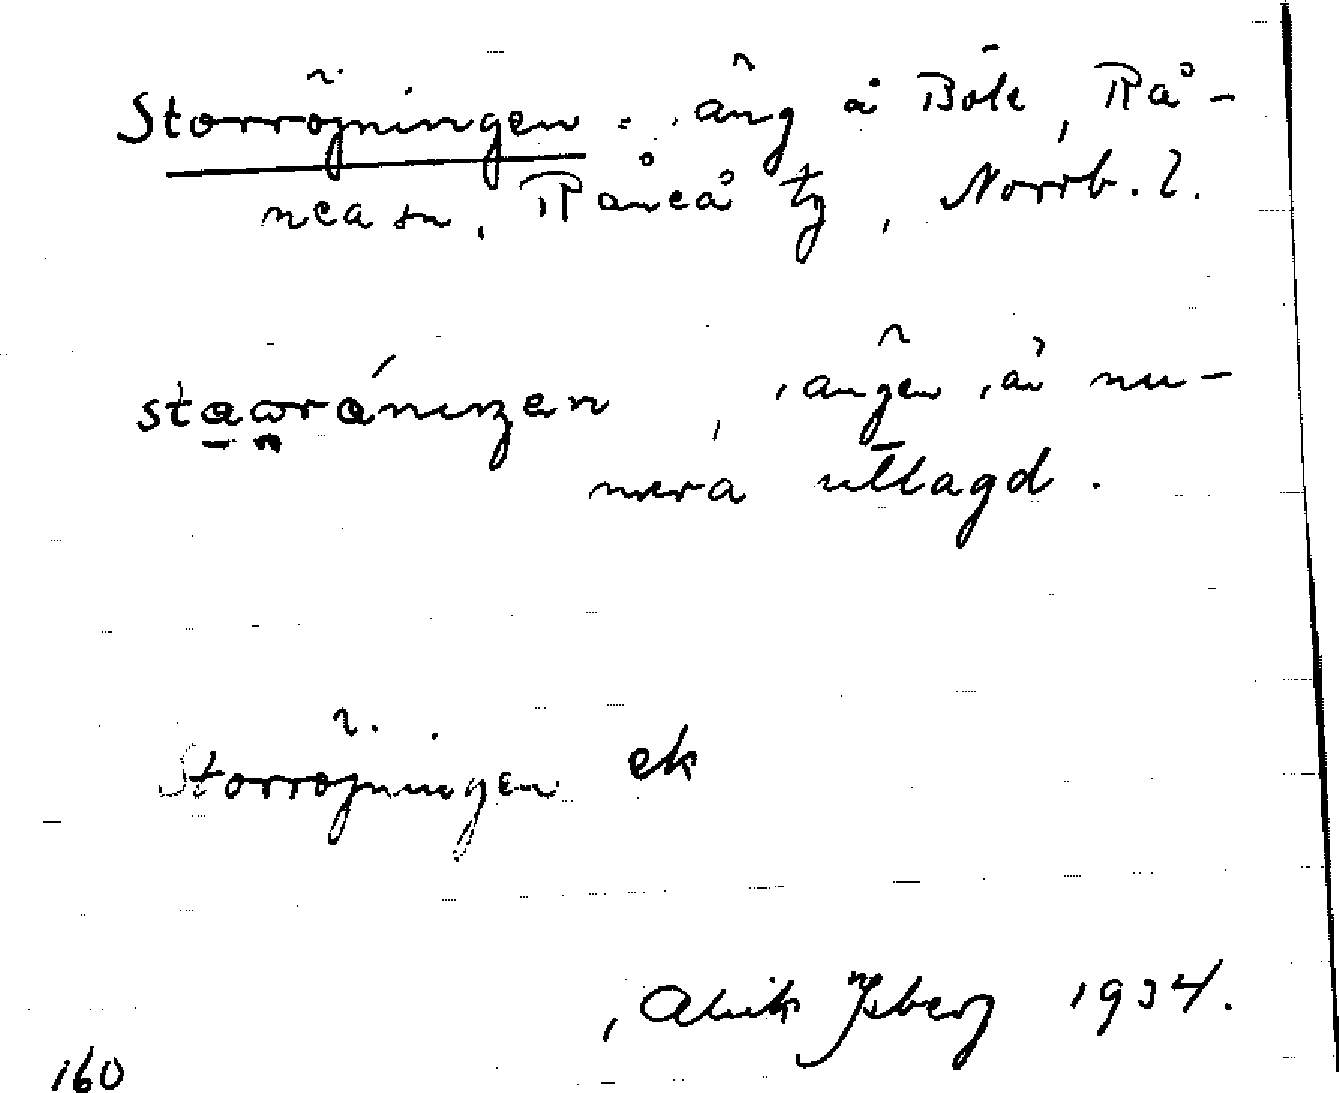 Storröjningen . äng å Böle, Rå-
neå sn, Råneå tg, Norrb. l.
, ängen är nu-
mera utlagd.
Storröjningen ek
Alrik Ysberg 1934.
160